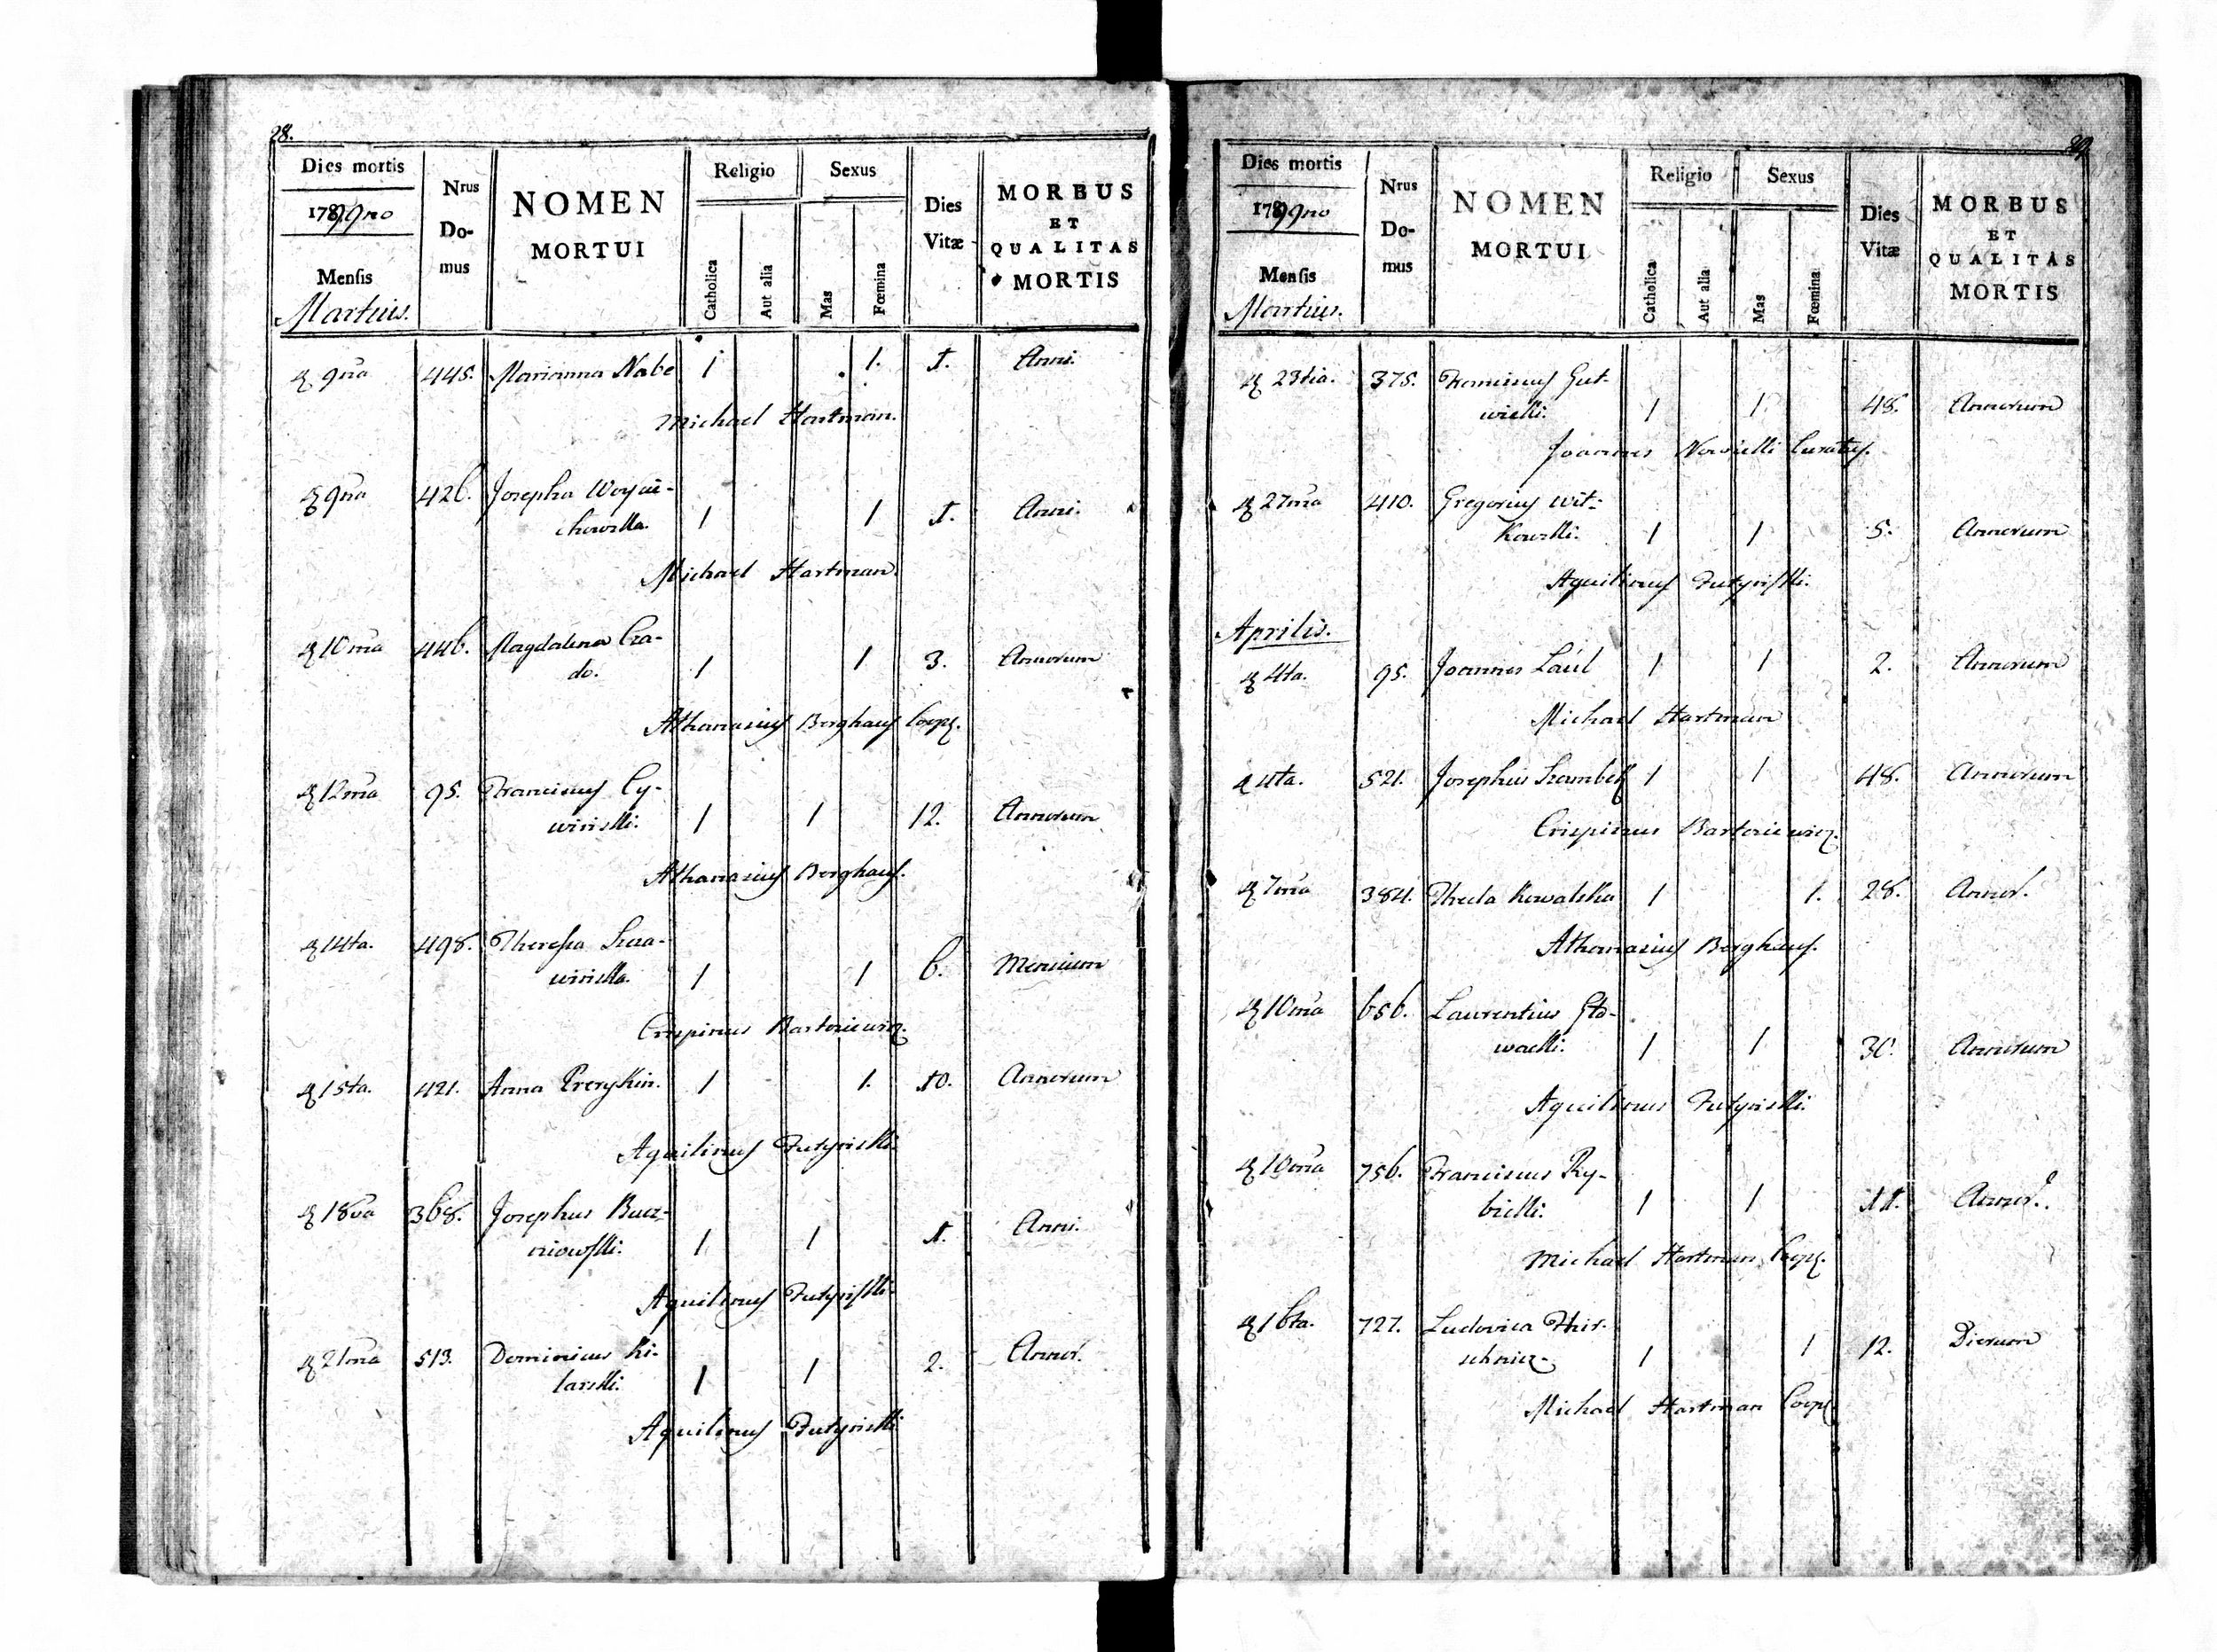 28.
Dies mortis
1799no
Mensis
Martius.
Nrus
Do-
mus
NOMEN
MORTUI
Religio
Catholica
Aut alia
Sexus
Mas
Fœmina
Dies
Vitæ
MORBUS
ET
QUALITAS
MORTIS
9na 445. Marianna Nabe 1 1. 1. Anni.
Michael Hartman.
9na 426. Josepha Woycie-
chowska. 1 1 1. Anni.
Michael Hartman.
10ma 446. Magdalena
do. 1 1 3. Annorum
Athanasius Berghaus Coop.
12ma 95. Franciscus Cy-
winski. 1 1 12. Annorum
Athanasius Berghaus.
14ta. 498. Theresia
winska. 1 1 6. Mensium
Crispinus Bartoniewicz.
15ta. 421. Anna 1 1. 10. Annorum
Aquilinus
18va 368. Josephus
niowski. 1 1 1. Anni.
Aquilinus
21ma 513. Dominicus Ki-
larski. 1 1 2. Annor.
Aquilinus
29.
Dies mortis
1799no
Mensis
Martius.
Nrus
Do-
mus
NOMEN
MORTUI
Religio
Catholica
Aut alia
Sexus
Mas
Fœmina
Dies
Vitæ
MORBUS
ET
QUALITAS
MORTIS
23tia. 375. Franciscus Gut-
wiecki. 1 1 48. Annorum
Joannes Nowicki Curatus.
27ma 410. Gregorius Wit-
kowski. 1 1 5. Annorum
Aquilinus
Aprilis.
4ta. 95. Joannes 1 1 2. Annorum
Michael Hartman
4ta. 521. Josephus Szembek 1 1 48. Annorum
Crispinus Bartoniewicz.
7ma 384. Thecla Kowalska 1 1. 28. Annor.
Athanasius Berghaus.
10ma 656. Laurentius Gło-
wacki. 1 1 30. Annorum
Aquilinus
10ma 756. Franciscus Ry-
bicki. 1 1 11. Annor.
Michael Hartman Coop.
16ta. 727. Ludovica
1 1 12. Dierum
Michael Hartman Coop.